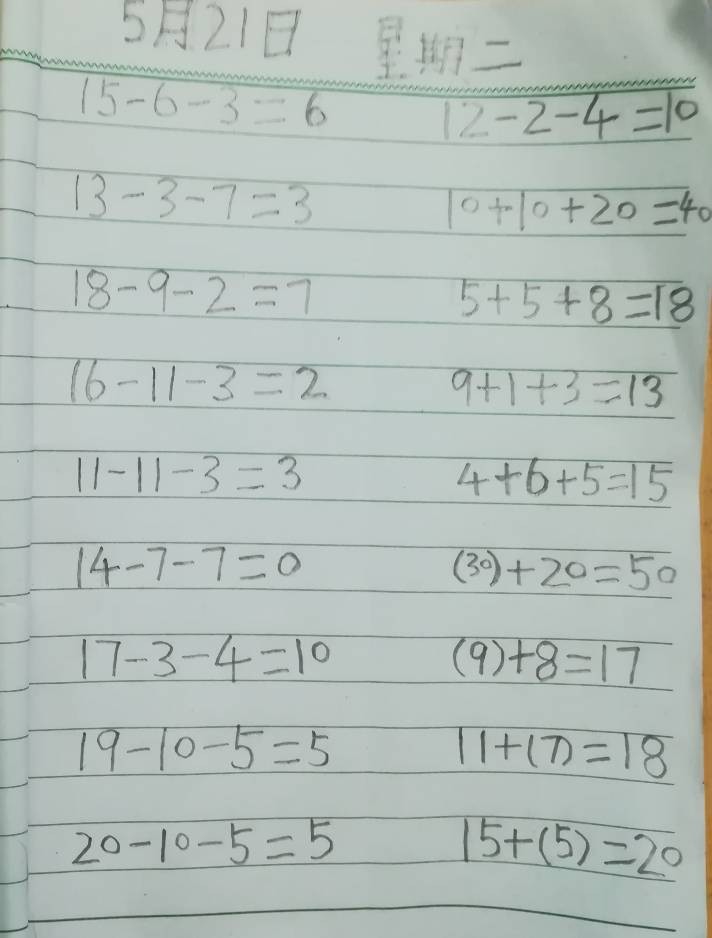 5月21日 星期二
15-6-3=6 12-2-4=10
13-3-7=3 10+10+20=40
18-9-2=7 5+5+8=18
16-11-3=2 9+1+3=13
11-11-3=3 4+6+5=15
14-7-7=0 (30)+20=50
17-3-4=10 (9)+8=17
19-10-5=5 11+(7)=18
20-10-5=5 15+(5)=20